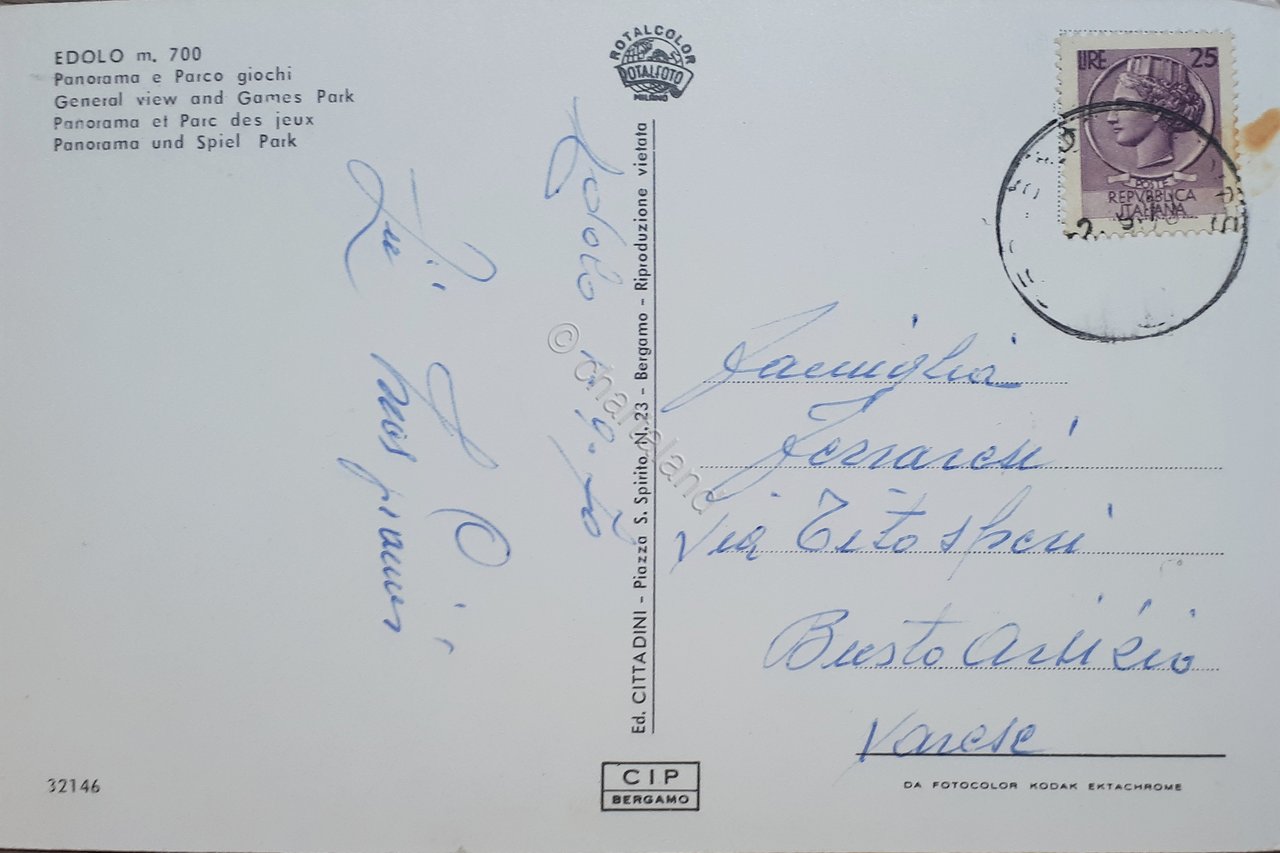 EDOLO m. 700
Panorama e Parco giochi
General view and Games Park
Panorama et Parc des jeux
Panorama und Spiel Park
ROTALCOLOR
ROTALFOTO
MILANO
LIRE 25
POSTE
REPVBBLICA
ITALIANA
Edolo
Famiglia
Ferraresi
Via Tito Speri
Busto Arsizio
Varese
Ed. CITTADINI - Piazza S. Spirito, N. 23 - Bergamo - Riproduzione vietata
© chartaland
32146
CIP
BERGAMO
DA FOTOCOLOR KODAK EKTACHROME